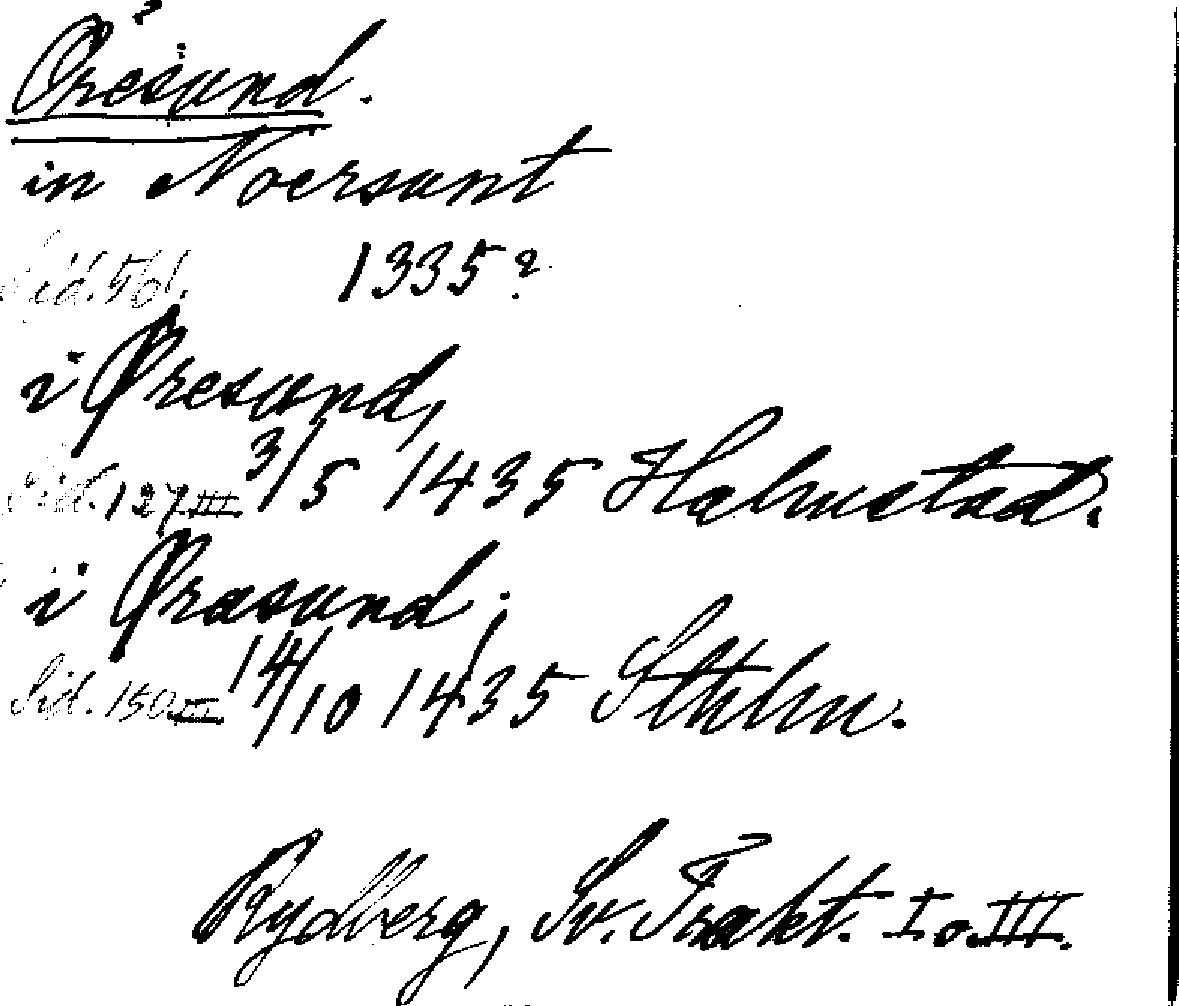 Öresund.
in Noersunt
Sid. 561. 1335?
i Øresund,
Sid. 127 III 3/5 1435 Halmstad.
i Ørasund,
Sid. 150 III 14/10 1435 Sthlm.
Rydberg, Sv. Trakt. I o. III.